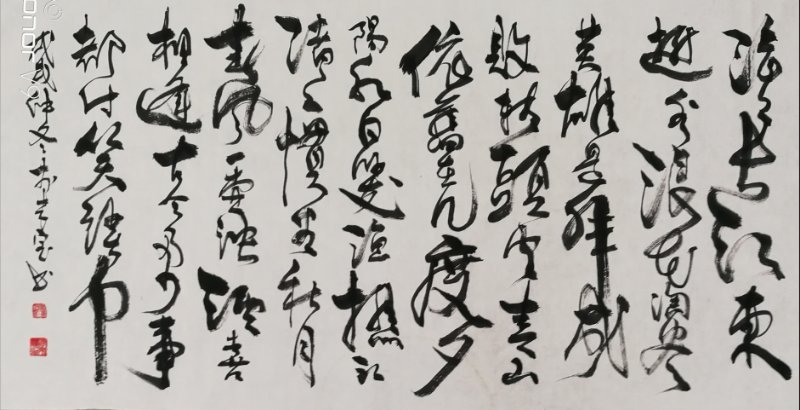 滚滚長江東
逝水浪花淘尽
英雄是非成
敗转頭空青山
依舊在几度夕
陽红白髮渔樵江
渚上惯看秋月
春风一壶浊酒喜
相逢古今多少事
都付笑谈中
戊戌仲冬 书
onor V9